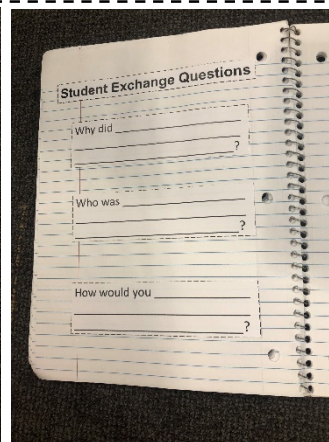 Student Exchange Questions
Why did ____________________
____________________________
___________________________?
Who was ____________________
____________________________
___________________________?
How would you ______________
____________________________
___________________________?